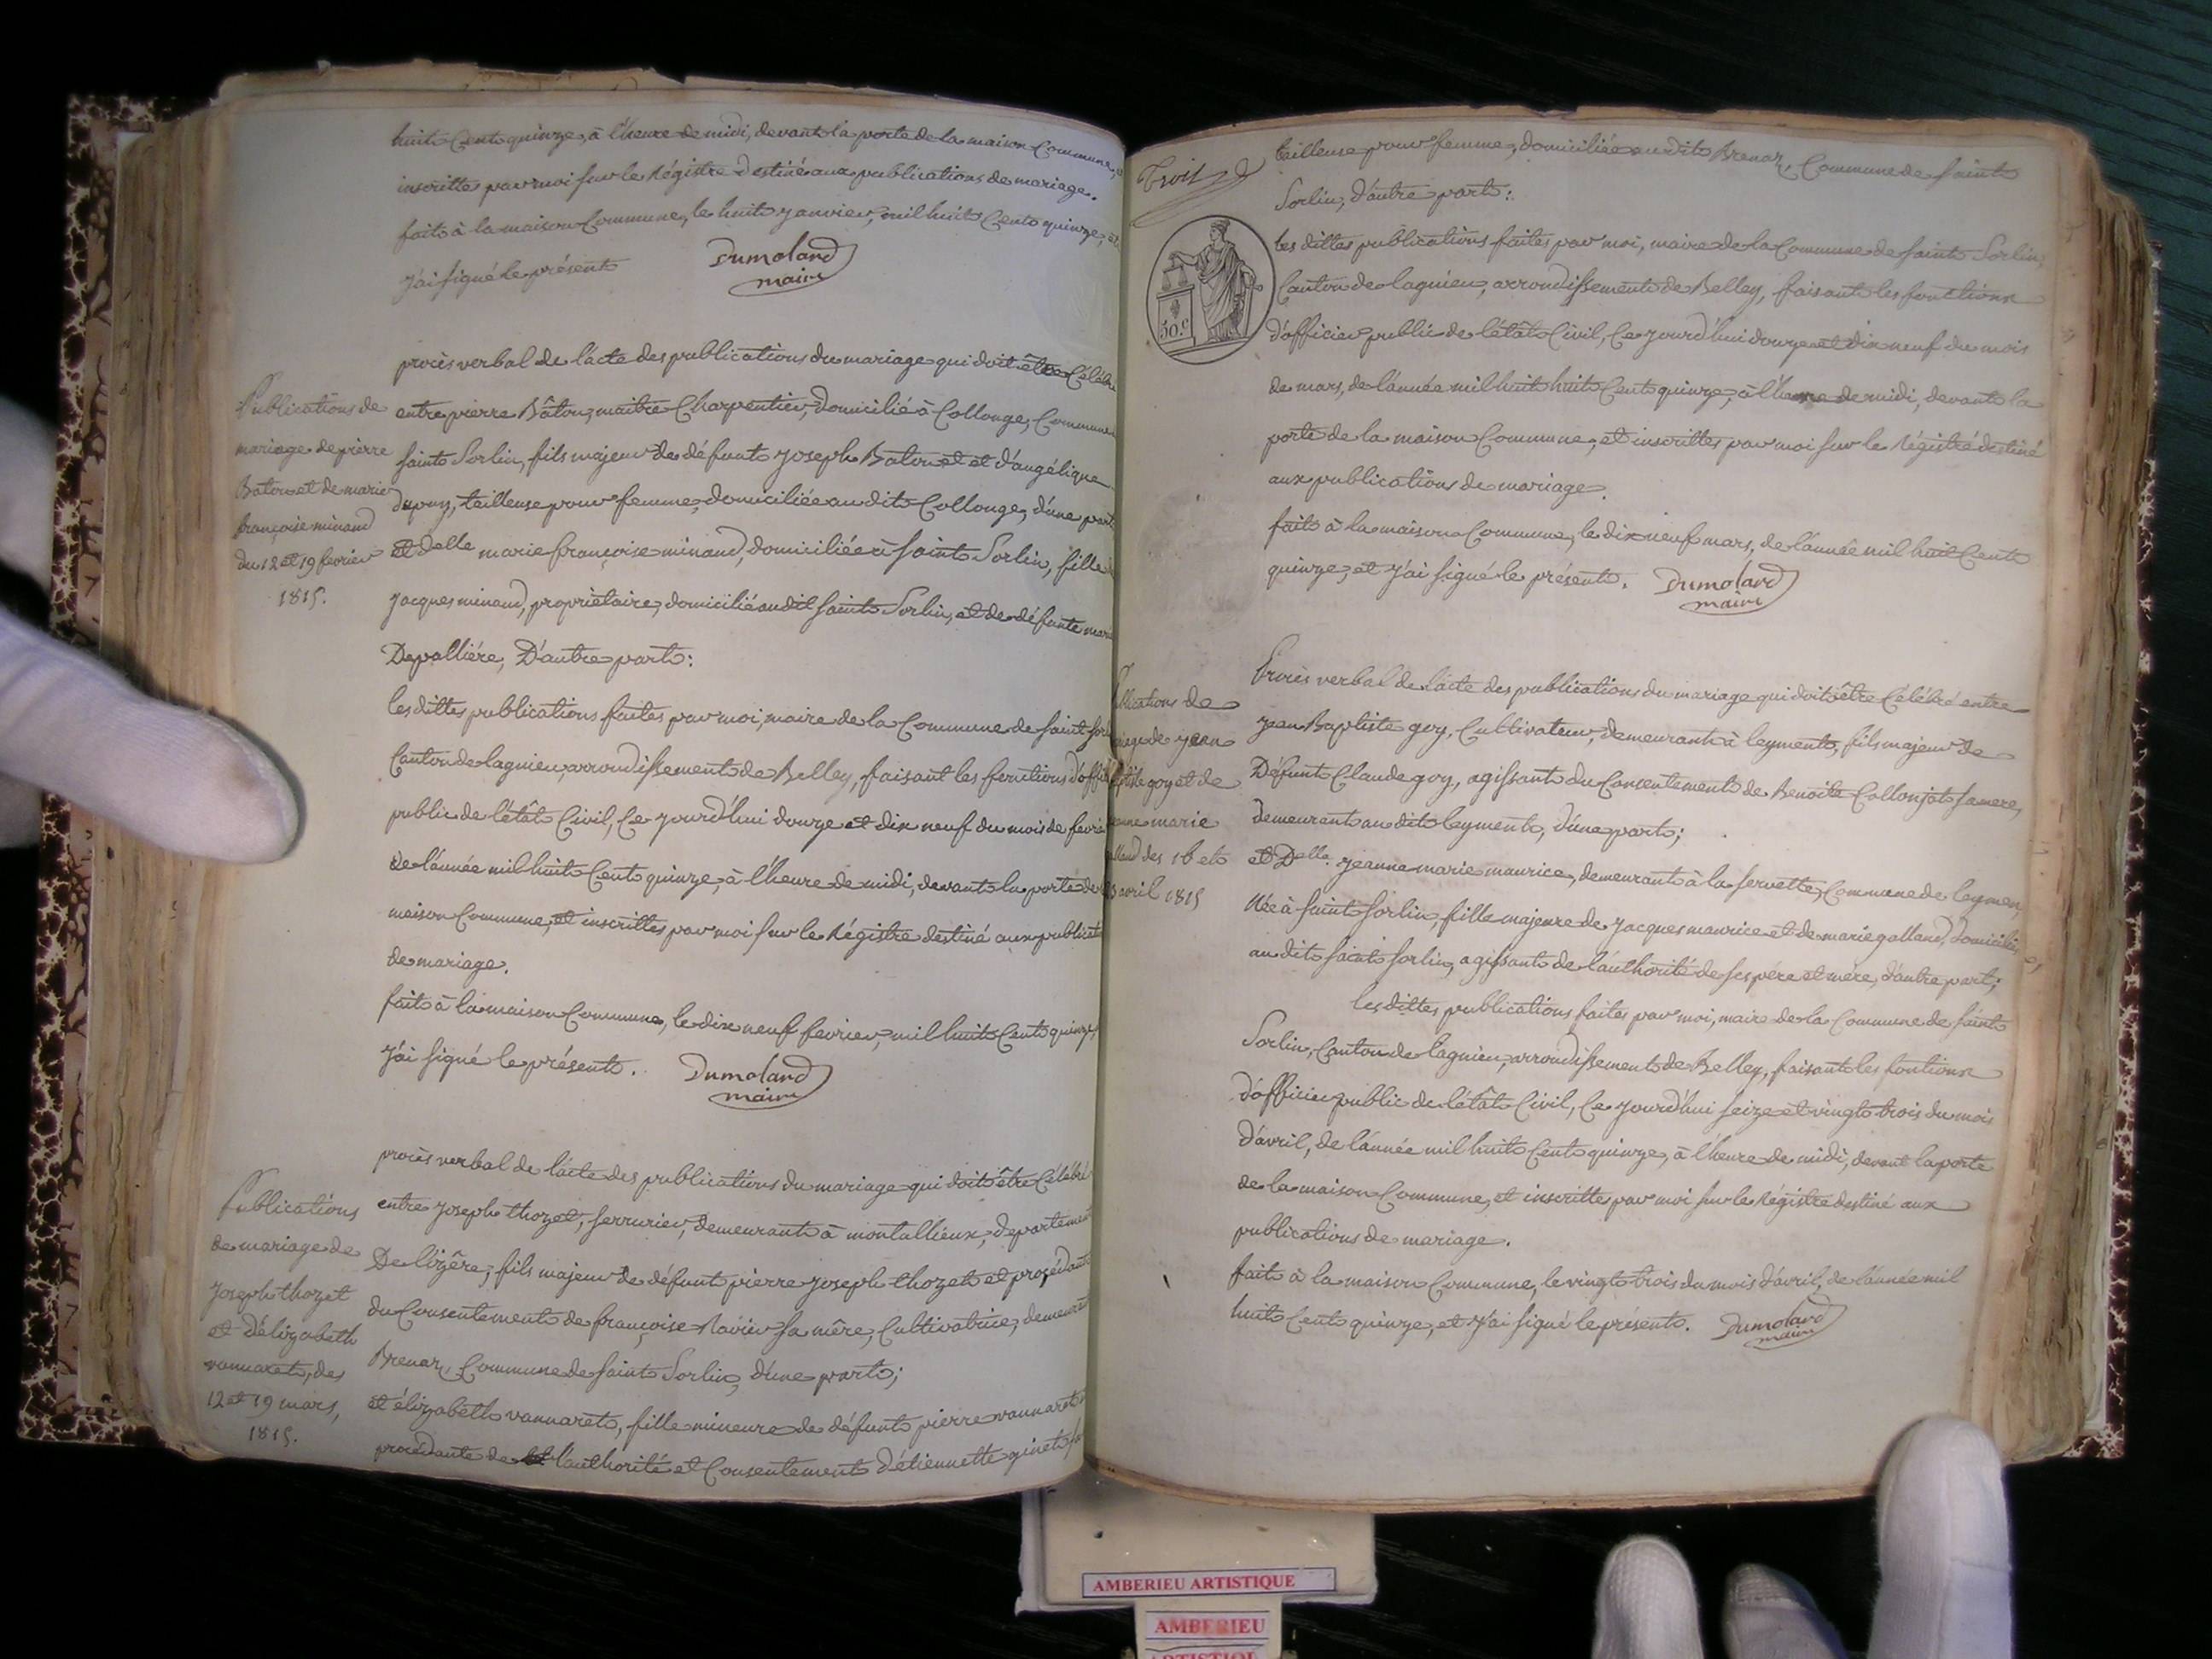 huit Cent quinze, à l'heure de midi, devant la porte de la maison Commune, et
inscritte par moi sur le Régistre destiné aux publications de mariage.
fait à la maison Commune, le huit janvier, mil huit Cent quinze, et
j'ai signé le présent
Dumoland
maire
procès verbal de l'acte des publications du mariage qui doit être Célébré
Publications de
mariage de pierre
Baton et de marie
françoise minand
du 12 et 19 fevrier
1815.
entre pierre Bâton, maitre Charpentier, domicilié à Collonge, Commune
saint Sorlin, fils majeur de défunt joseph Baton et d'angélique
dupuy, tailleuse pour femme, domiciliée au dit Collonge, d'une part
et Delle marie françoise minand, domiciliée à saint Sorlin, fille
jacques minand, propriétaire, domicilié au dit saint Sorlin, et de défunte marie
Depallière, D'autre part:
les dittes publications faites par moi, maire de la Commune de saint Sor
Canton de lagnieu, arrondissement de Belley, faisant les fonctions d'offi
public de l'état Civil, Ce jourd'hui douze et dix neuf du mois de fevrier
de l'année mil huit Cent quinze, à l'heure de midi, devant la porte de
maison Commune, et inscrittes par moi sur le Régistre destiné aux publicat
de mariage.
fait à la maison Commune, le dix neuf fevrier, mil huit Cent quinze,
j'ai signé le présent.
Dumoland
maire
procès verbal de l'acte des publications du mariage qui doit être Célébré
Publications
de mariage de
joseph thozet
et d'élizabeth
vannaret, des
12 et 19 mars,
1815.
entre joseph thozet, serrurier, demeurant à montallieux, département
De lizère, fils majeur de défunt pierre joseph thozet et procédant
du Consentement de françoise Ravier sa mère, Cultivatrice, demeurant
Brenaz, Commune de saint Sorlin, d'une part;
et élizabeth vannaret, fille mineure de défunt pierre vannaret
procédante de l'authorité et Consentement d'étiennette ginet
Trois
50.c
tailleuse pour femme, domiciliée au dit Brenaz, Commune de saint
Sorlin, d'autre part:
les dittes publications faites par moi, maire de la Commune de saint Sorlin,
Canton de lagnieu, arrondissement de Belley, faisant les fonctions
d'officier public de l'état Civil, Ce jourd'hui douze et dix neuf du mois
de mars, de l'année mil huit huit Cent quinze, à l'heure de midi, devant la
porte de la maison Commune, et inscrittes par moi sur le Régistré destiné
aux publications de mariage.
fait à la maison Commune, le dix neuf mars, de l'année mil huit Cent
quinze, et j'ai signé le présent.
Dumoland
maire
blications de
riage de jean
ptiste goy et de
eanne marie
16 et
avril 1815
Procès verbal de l'acte des publications du mariage qui doit être Célébré entre
jean Baptiste goy, Cultivateur, demeurant à leyment, fils majeur de
Défunt Claude goy, agissant du Consentement de Benoite Collonjat sa mere,
demeurant au dit leyment, d'une part;
et Delle jeanne marie maurice, demeurant à la servette, Commune de leyment,
Née à saint sorlin, fille majeure de jacques maurice et de marie galland, domiciliés
au dit saint sorlin, agissant de l'authorité de ses père et mère, d'autre part;
les dittes publications faites par moi, maire de la Commune de saint
Sorlin, Canton de lagnieu, arrondissement de Belley, faisant les fontions
d'officier public de l'état Civil, Ce jourd'hui seize et vingt trois du mois
d'avril, de l'année mil huit Cent quinze, à l'heure de midi, devant la porte
de la maison Commune, et inscrittes par moi sur le Régistre destiné aux
publications de mariage.
fait à la maison Commune, le vingt trois du mois d'avril, de l'année mil
huit Cent quinze, et j'ai signé le présent.
Dumoland
maire
AMBERIEU ARTISTIQUE
AMBERIEU
ARTISTIQUE